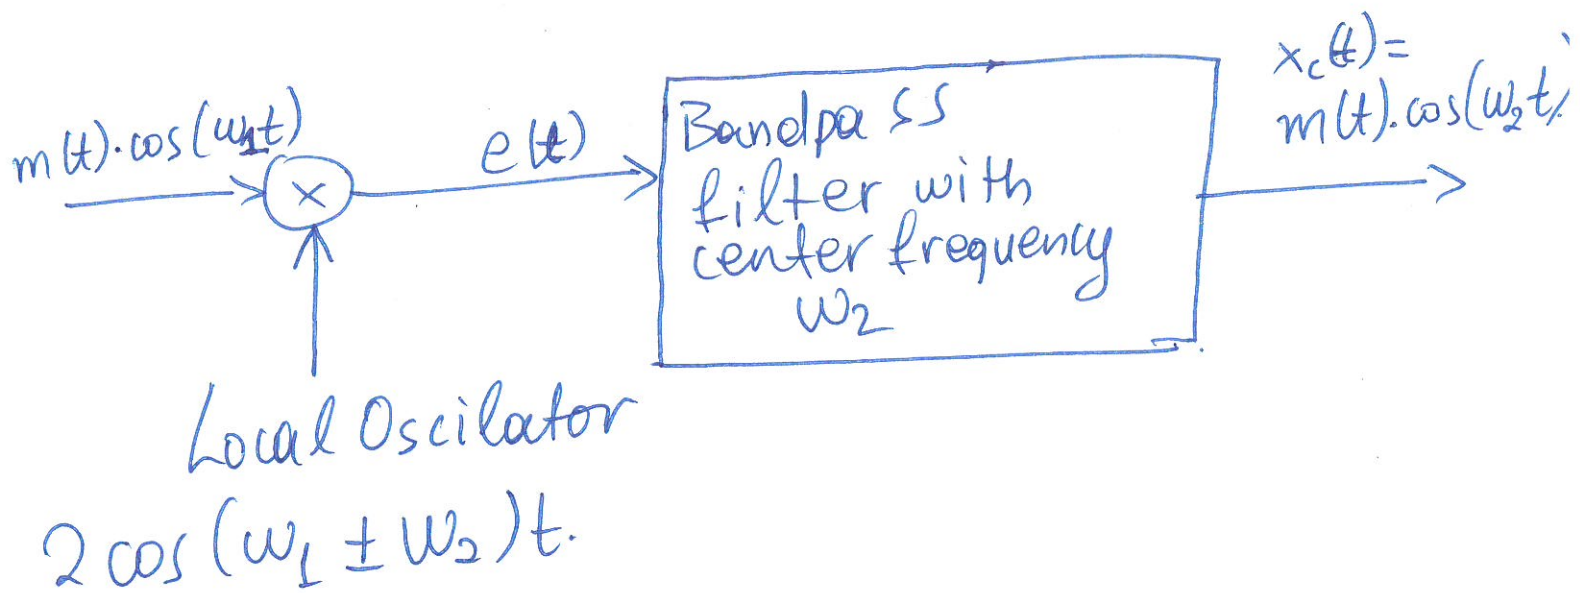 m(t).cos(ω1t)
e(t)
Bandpass
filter with
center frequency
ω2
xc(t)=
m(t).cos(ω2t)
×
Local Oscilator
2cos(ω1 ± ω2)t.